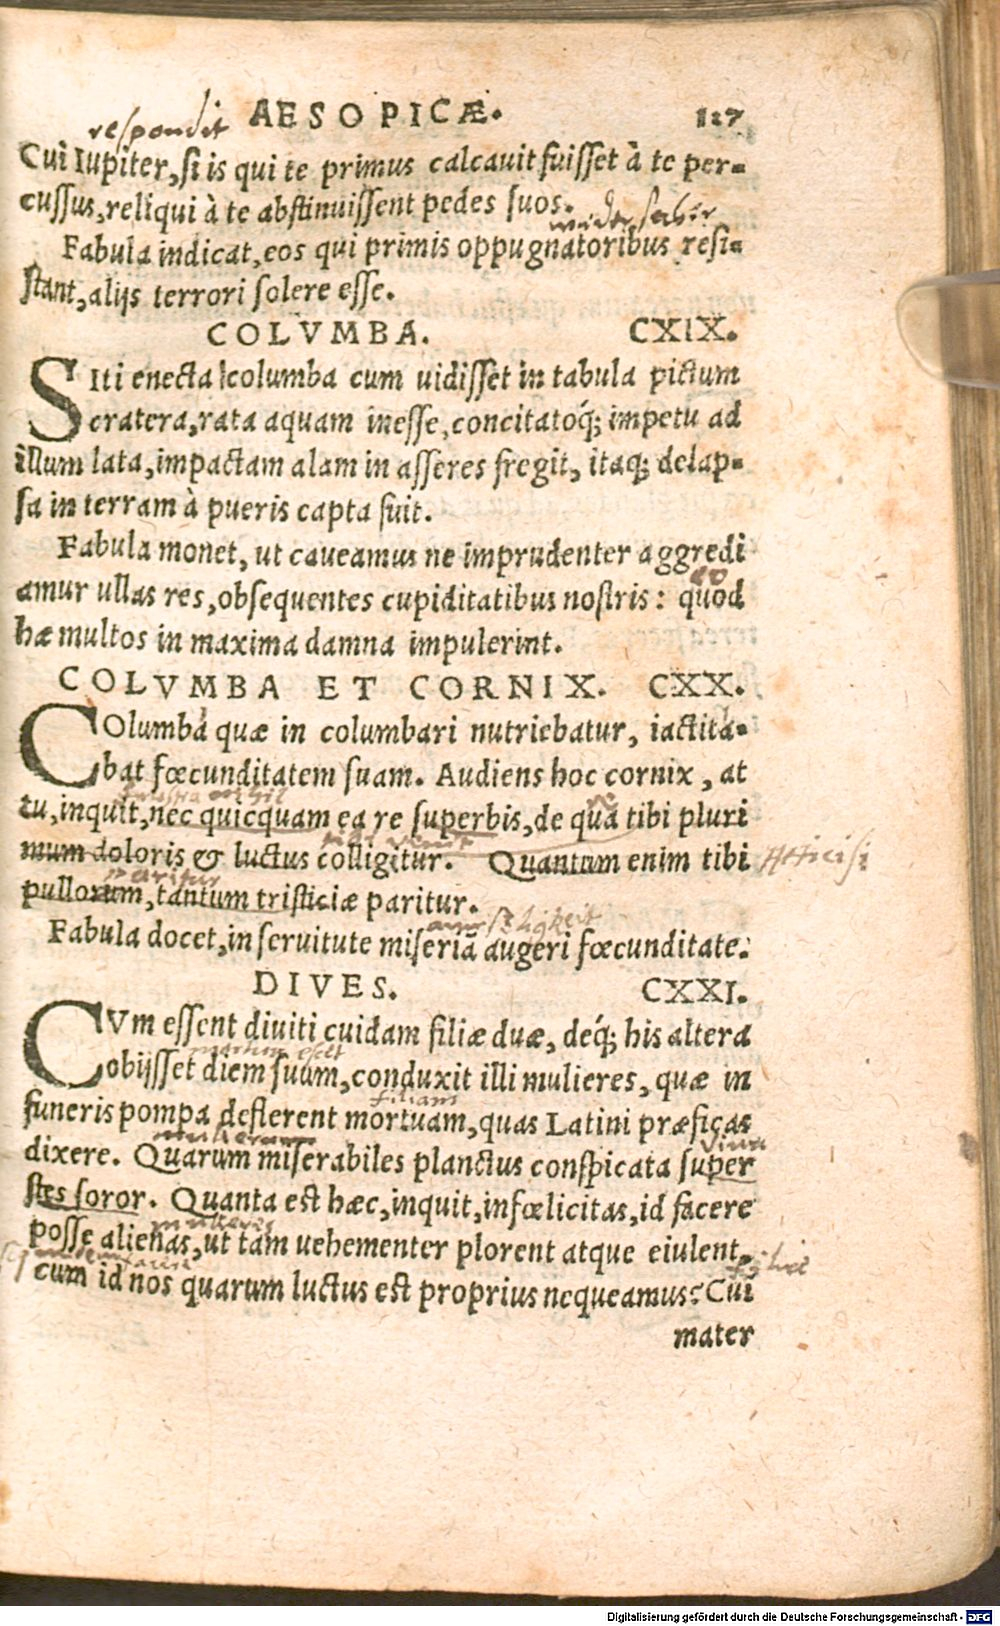 AESOPICÆ. 127
respondit
Cui Iupiter, si is qui te primus calcauit fuisset à te per-
cussus, reliqui à te abstinuissent pedes suos.
Fabula indicat, eos qui primis oppugnatoribus resi-
stant, alijs terrori solere esse.
COLVMBA. CXIX.
SIti enecta columba cum uidisset in tabula pictum
cratera, rata aquam inesse, concitatoq́; impetu ad
illum lata, impactam alam in asseres fregit, itaq; delap-
sa in terram à pueris capta fuit.
Fabula monet, ut caueamus ne imprudenter aggredi
amur ullas res, obsequentes cupiditatibus nostris: quod
hæ multos in maxima damna impulerint.
COLVMBA ET CORNIX. CXX.
COlumba quæ in columbari nutriebatur, iactita-
bat fœcunditatem suam. Audiens hoc cornix, at
tu, inquit, nec quicquam ea re superbis, de qua tibi pluri
mum doloris & luctus colligitur. Quantum enim tibi
paritur
pullorum, tantum tristiciæ paritur.
Fabula docet, in seruitute miseriã augeri fœcunditate.
DIVES. CXXI.
CVm essent diuiti cuidam filiæ duæ, deq́; his altera
obijsset diem suum, conduxit illi mulieres, quæ in
filiam
funeris pompa deflerent mortuam, quas Latini præficas
mulierum
dixere. Quarum miserabiles planctus conspicata super
stes soror. Quanta est hæc, inquit, infœlicitas, id facere
mulieres
posse alienas, ut tam uehementer plorent atque eiulent,
cum id nos quarum luctus est proprius nequeamus? Cui
mater
Digitalisierung gefördert durch die Deutsche Forschungsgemeinschaft - DFG